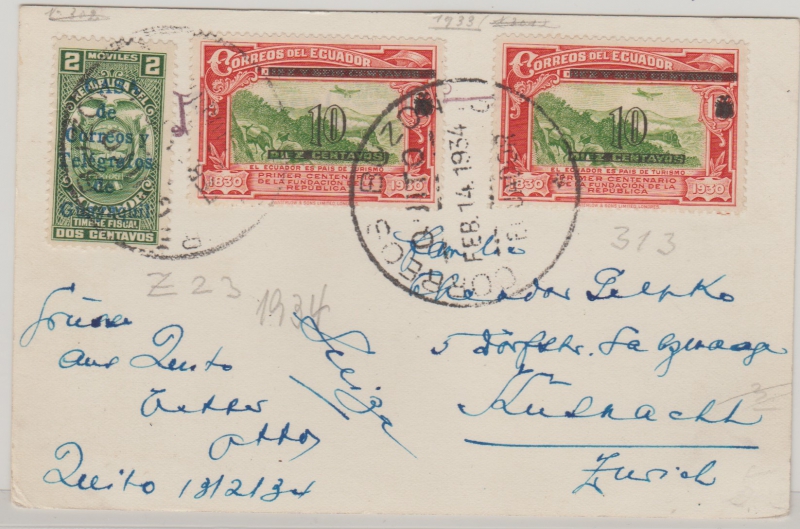 1933
2 MÓVILES 2
Casa
de
Correos y
Telégrafos
de
Guayaquil
TIMBRE FISCAL
DOS CENTAVOS
CORREOS DEL ECUADOR
10
DIEZ CENTAVOS
EL ECUADOR ES PAIS DE TURISMO
1830 PRIMER CENTENARIO 1930
DE LA FUNDACIÓN DE LA
REPÚBLICA
CORREOS DEL ECUADOR
10
DIEZ CENTAVOS
EL ECUADOR ES PAIS DE TURISMO
1830 PRIMER CENTENARIO 1930
DE LA FUNDACIÓN DE LA
REPÚBLICA
CORREOS
FEB. 14. 1934
313
Z 23
1934
Familie
5 Dörfstr.
Küsnacht
Zürich
Suiza
Grüsse
aus Quito
Vetter
Otto
Quito 13/2/34